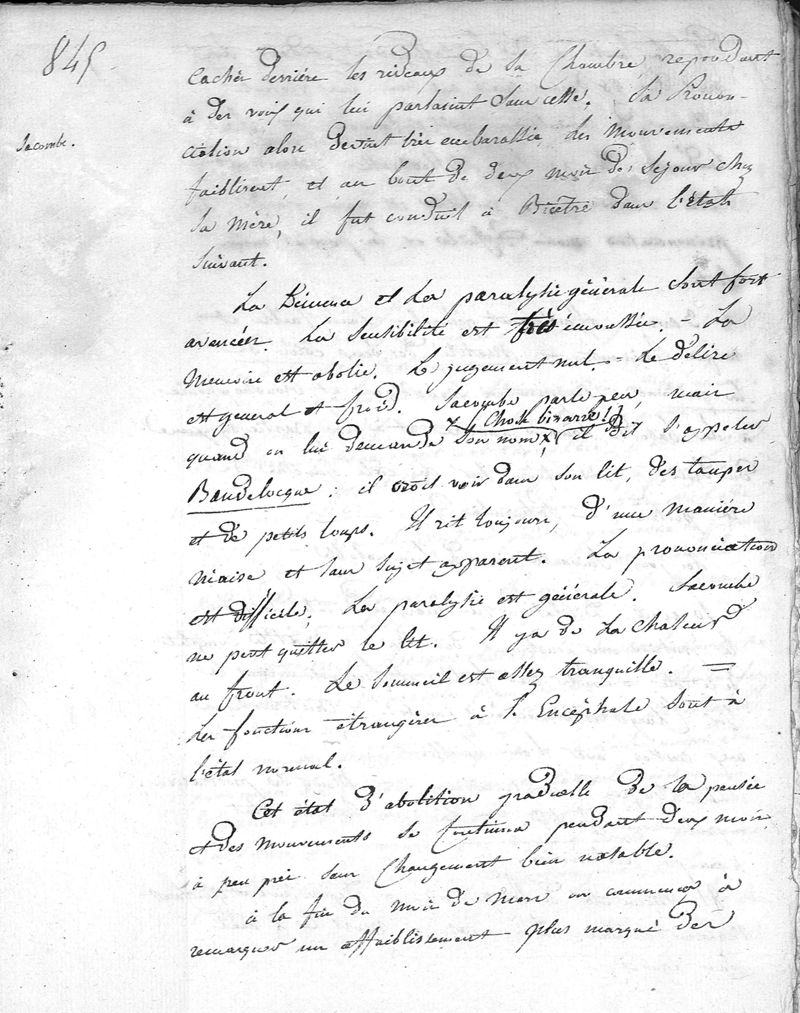 845
Sacombe.
cacher derrière les rideaux de la Chambre, repondant
à des voix qui lui parlaient sans cesse. Sa Pronon-
ciation alors devint très embarassée, Les mouvements
faiblirent, et au bout de deux mois de Sejour chez
sa mère, il fut conduit à Bicêtre dans l'état
suivant.
La Démence et la paralysie générale sont fort
avancées. La Sensibilité est très émoussée. - La
Memoire est abolie. Le jugement nul. - Le délire
est general et froid. Sacombe parle peu, mais
(Chose bizarre!)
quand on lui demande son nom, il dit s'appeler
Baudelocque : il croit voir dans son lit, des taupes
et de petits loups. Il rit toujours, d'une manière
niaise et sans sujet apparent. La prononciation
est difficile, La paralysie est générale. Sacombe
ne peut quitter le lit. Il y a de La Chaleur
au front. Le sommeil est assez tranquille. =
Les fonctions étrangères à l'Encéphale sont à
l'état normal.
Cet état d'abolition graduelle de la pensée
et des mouvements se continua pendant deux mois
à peu près sans Changement bien notable.
à la fin du mois de mars on commença à
remarquer un affaiblissement plus marqué des